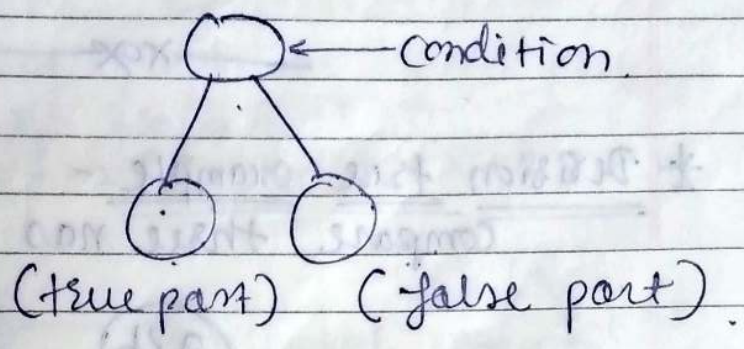 condition.
(true part) (false part).